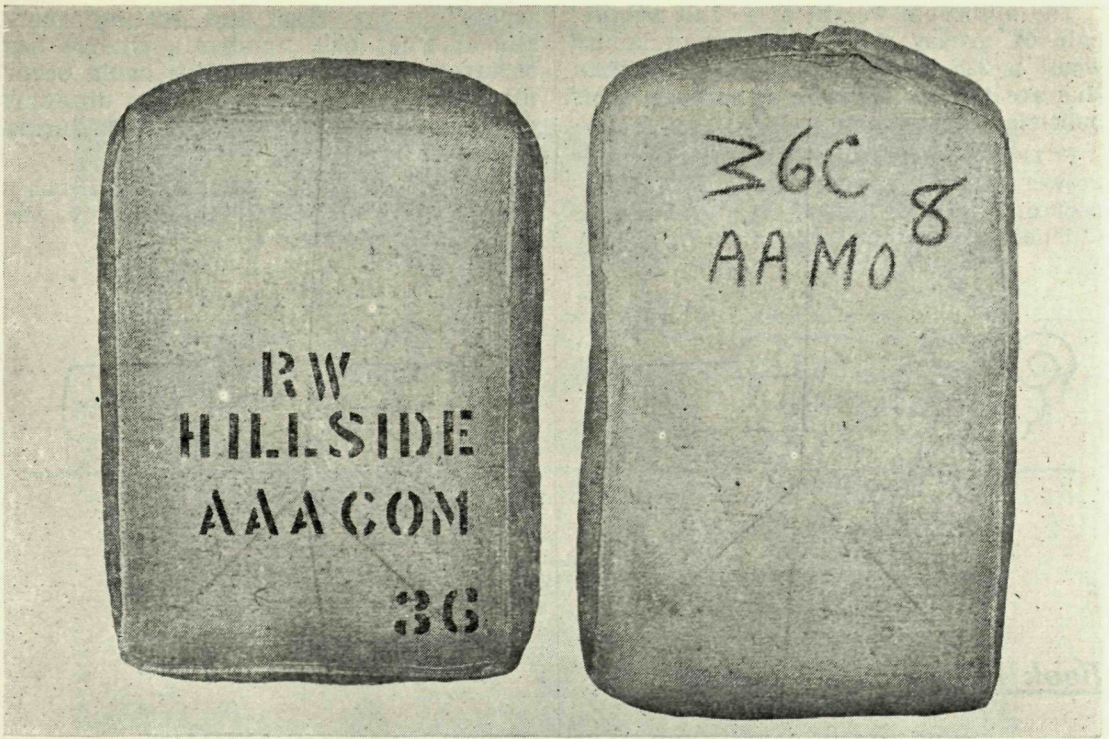 RW
HILLSIDE
AAACOM
36
36C
8
AAMO